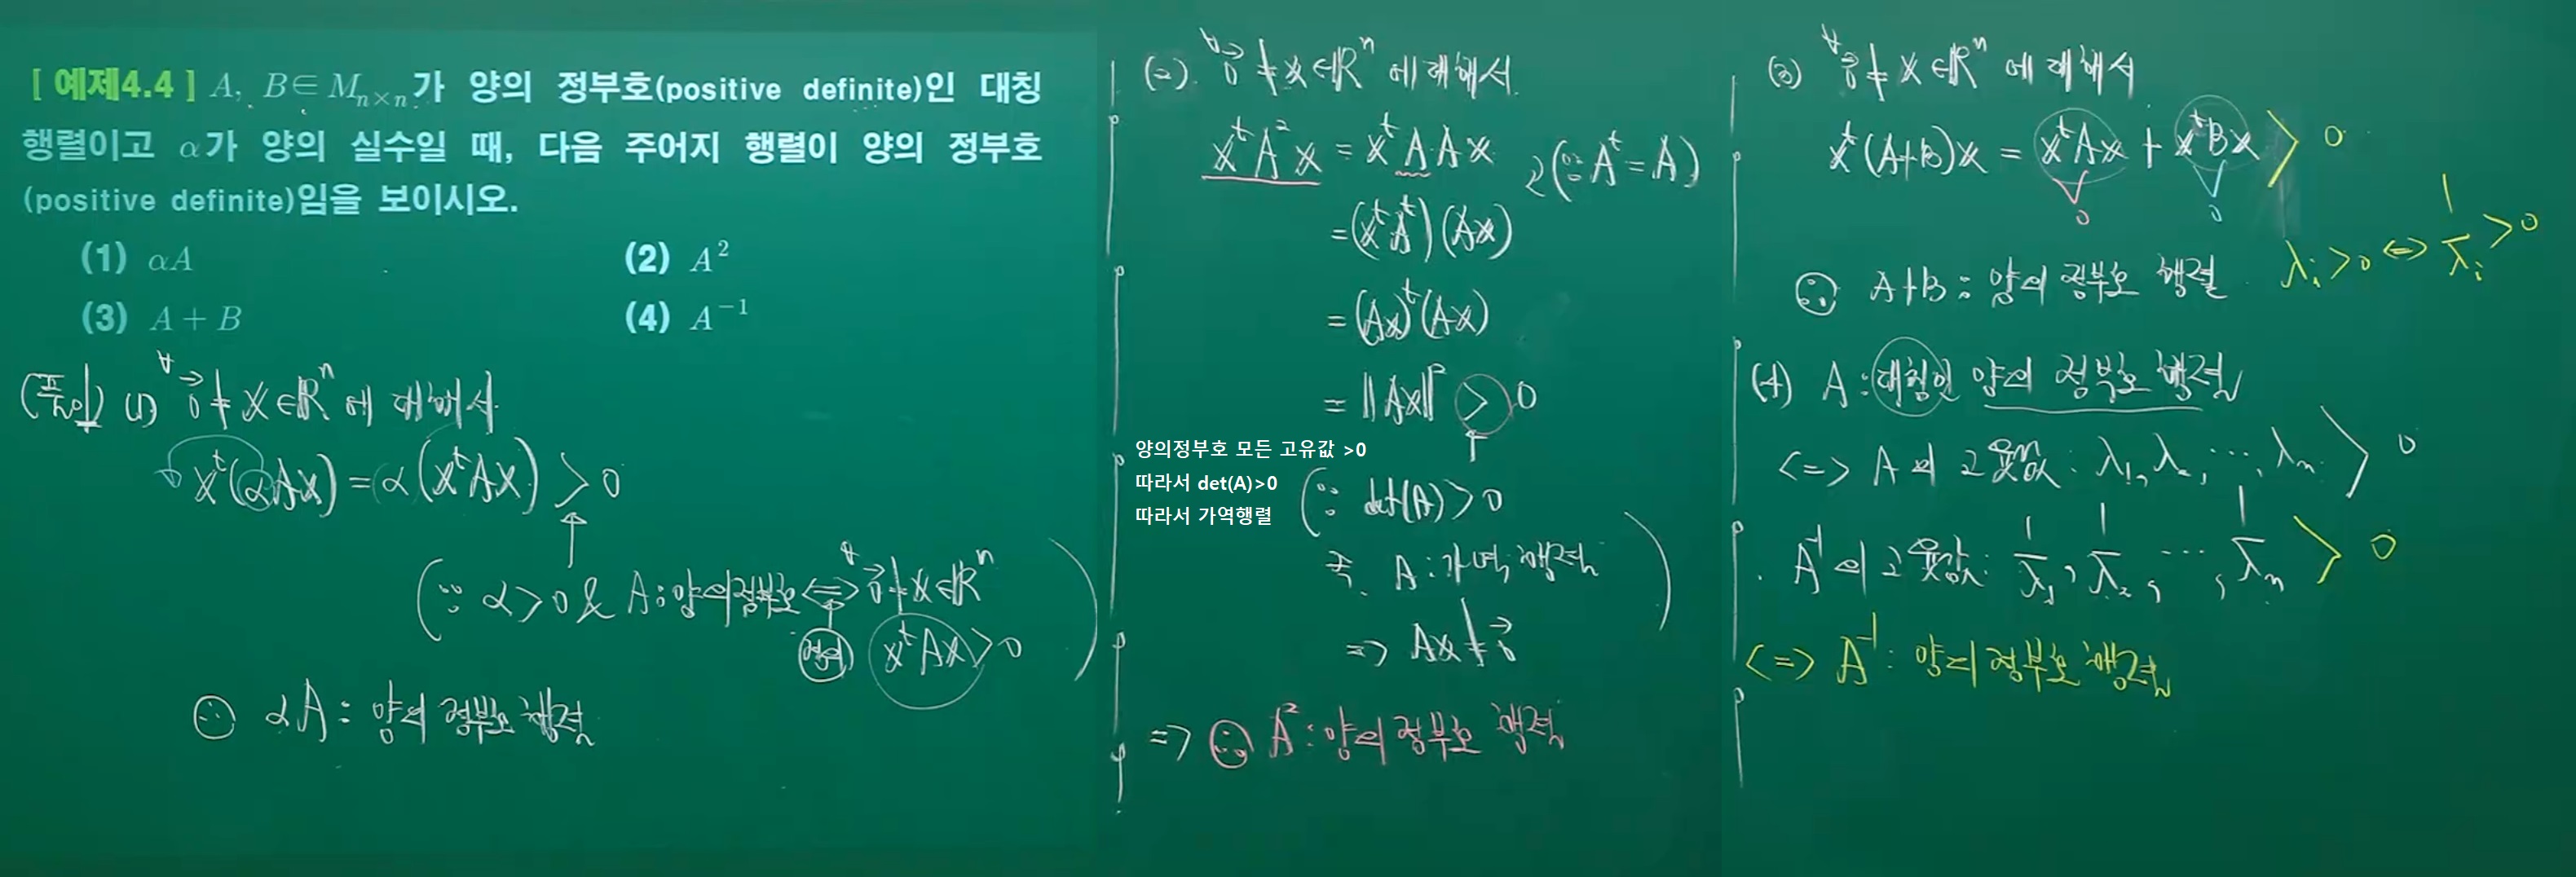 [ 예제4.4 ] A, B∈M_{n×n}가 양의 정부호(positive definite)인 대칭
행렬이고 α가 양의 실수일 때, 다음 주어지 행렬이 양의 정부호
(positive definite)임을 보이시오.
(1) αA (2) A²
(3) A + B (4) A⁻¹
(풀이) (1) ∀0⃗ ≠ x ∈ ℝⁿ 에 대해서
xᵗ(αAx) = α(xᵗAx) > 0
(∵ α > 0 & A : 양의 정부호 <=> ∀0⃗ ≠ x ∈ ℝⁿ
정의 xᵗAx > 0 )
∴ αA : 양의 정부호 행렬
(2) ∀0⃗ ≠ x ∈ ℝⁿ 에 대해서
xᵗA²x = xᵗAAx
(∵ Aᵗ = A)
= (xᵗAᵗ)(Ax)
= (Ax)ᵗ(Ax)
= ‖Ax‖² > 0
↑
양의정부호 모든 고유값 >0
따라서 det(A)>0
따라서 가역행렬
(∵ det(A) > 0
즉, A : 가역행렬
=> Ax ≠ 0⃗ )
=> ∴ A² : 양의 정부호 행렬
(3) ∀0⃗ ≠ x ∈ ℝⁿ 에 대해서
xᵗ(A+B)x = xᵗAx + xᵗBx > 0
∨ ∨
0 0
λᵢ > 0 <=> 1/λᵢ > 0
∴ A+B : 양의 정부호 행렬
(4) A : 대칭인 양의 정부호 행렬
<=> A의 고윳값 : λ₁, λ₂, ⋯, λₙ > 0
A⁻¹의 고윳값 : 1/λ₁, 1/λ₂, ⋯, 1/λₙ > 0
<=> A⁻¹ : 양의 정부호 행렬